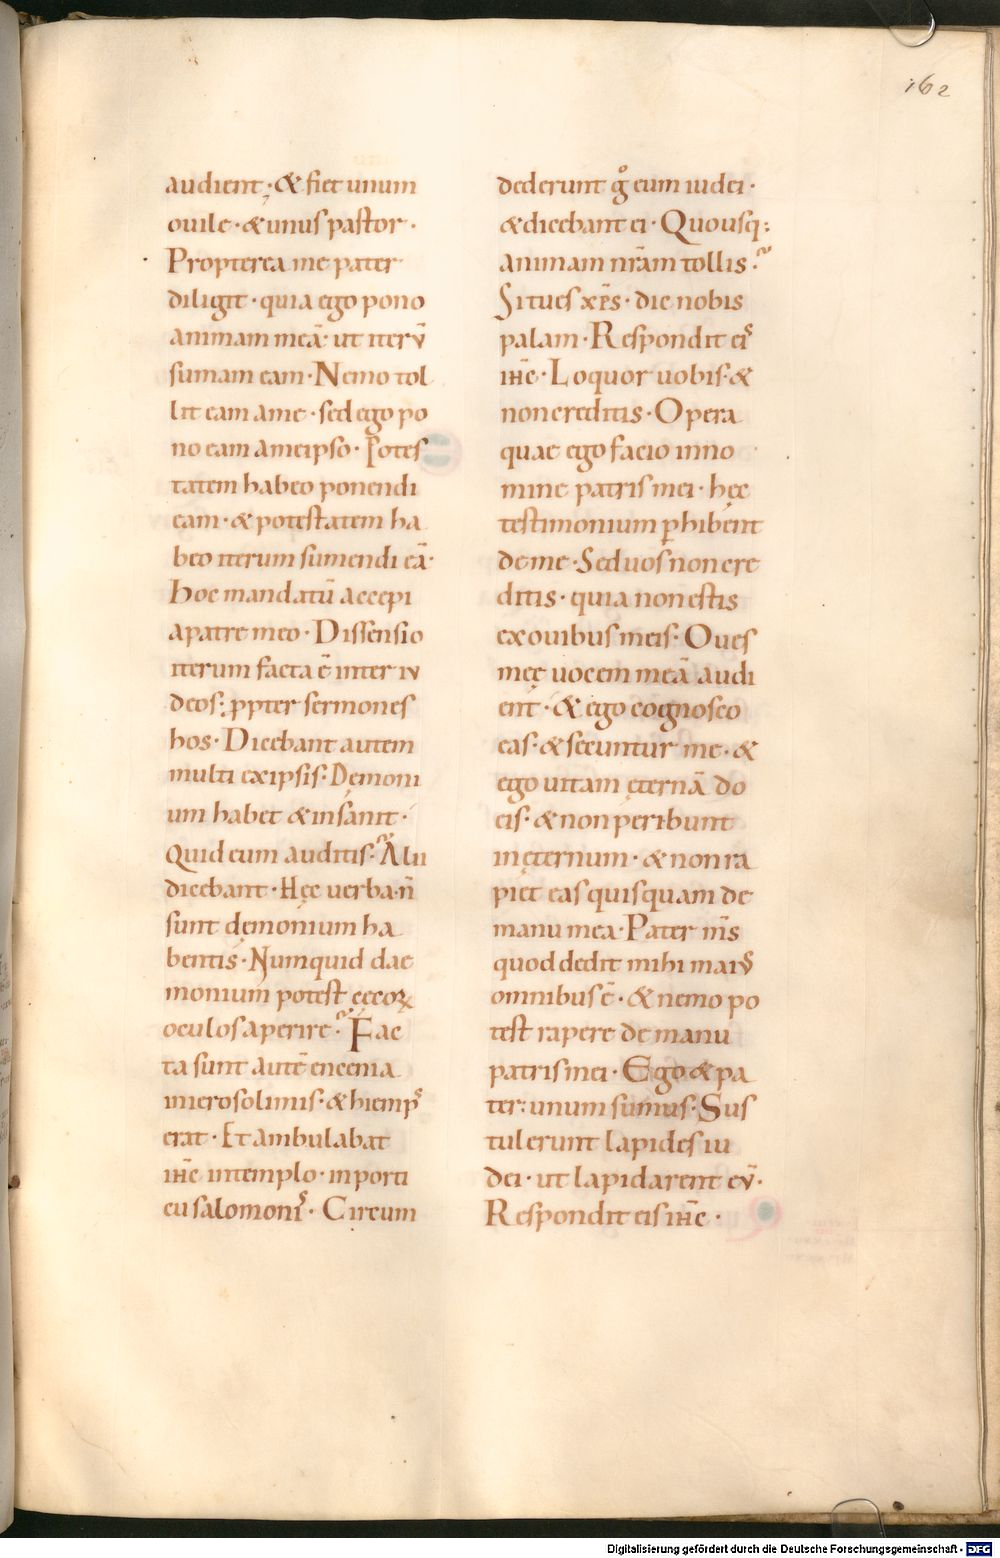 162
audient · & fiet unum
ouile · & unus pastor ·
Propterea me pater
diligit · quia ego pono
animam meā · ut iterū
sumam eam · Nemo tol
lit eam a me · sed ego po
no eam a meipso · Potes
tatem habeo ponendi
eam · & potestatem ha
beo iterum sumendi eā ·
Hoc mandatū accepi
a patre meo · Dissensio
iterum facta ē inter iu
deos · ꝓpter sermones
hos · Dicebant autem
multi ex ipsis · Dęmoni
um habet & insanit ·
Quid eum auditis · Alii
dicebant · Hęc uerba n̄
sunt dęmonium ha
bentis · Numquid dae
monium potest cęcoꝝ
oculos aperire · Fac
ta sunt autē encenia
in ierosolimis · & hiemps
erat · Et ambulabat
ih̄c in templo · in porti
cu salomonis · Circum
dederunt gͦ eum iudei ·
& dicebant ei · Quousq;
animam nr̄am tollis ·
Si tu es xp̄s · dic nobis
palam · Respondit eis
ih̄c · Loquor uobis · &
non creditis · Opera
quae ego facio in no
mine patris mei · hęc
testimonium ꝑhibent
de me · Sed uos non cre
ditis · quia non estis
ex ouibus meis · Oues
meę uocem meā audi
ent · & ego cognosco
eas · & secuntur me · &
ego uitam ęternā do
eis · & non peribunt
in ęternum · & non ra
piet eas quisquam de
manu mea · Pater m̄s
quod dedit mihi maius
omnibus ē · & nemo po
test rapere de manu
patris mei · Ego & pa
ter · unum sumus · Sus
tulerunt lapides iu
dei · ut lapidarent eū ·
Respondit eis ih̄c ·
Digitalisierung gefördert durch die Deutsche Forschungsgemeinschaft - DFG